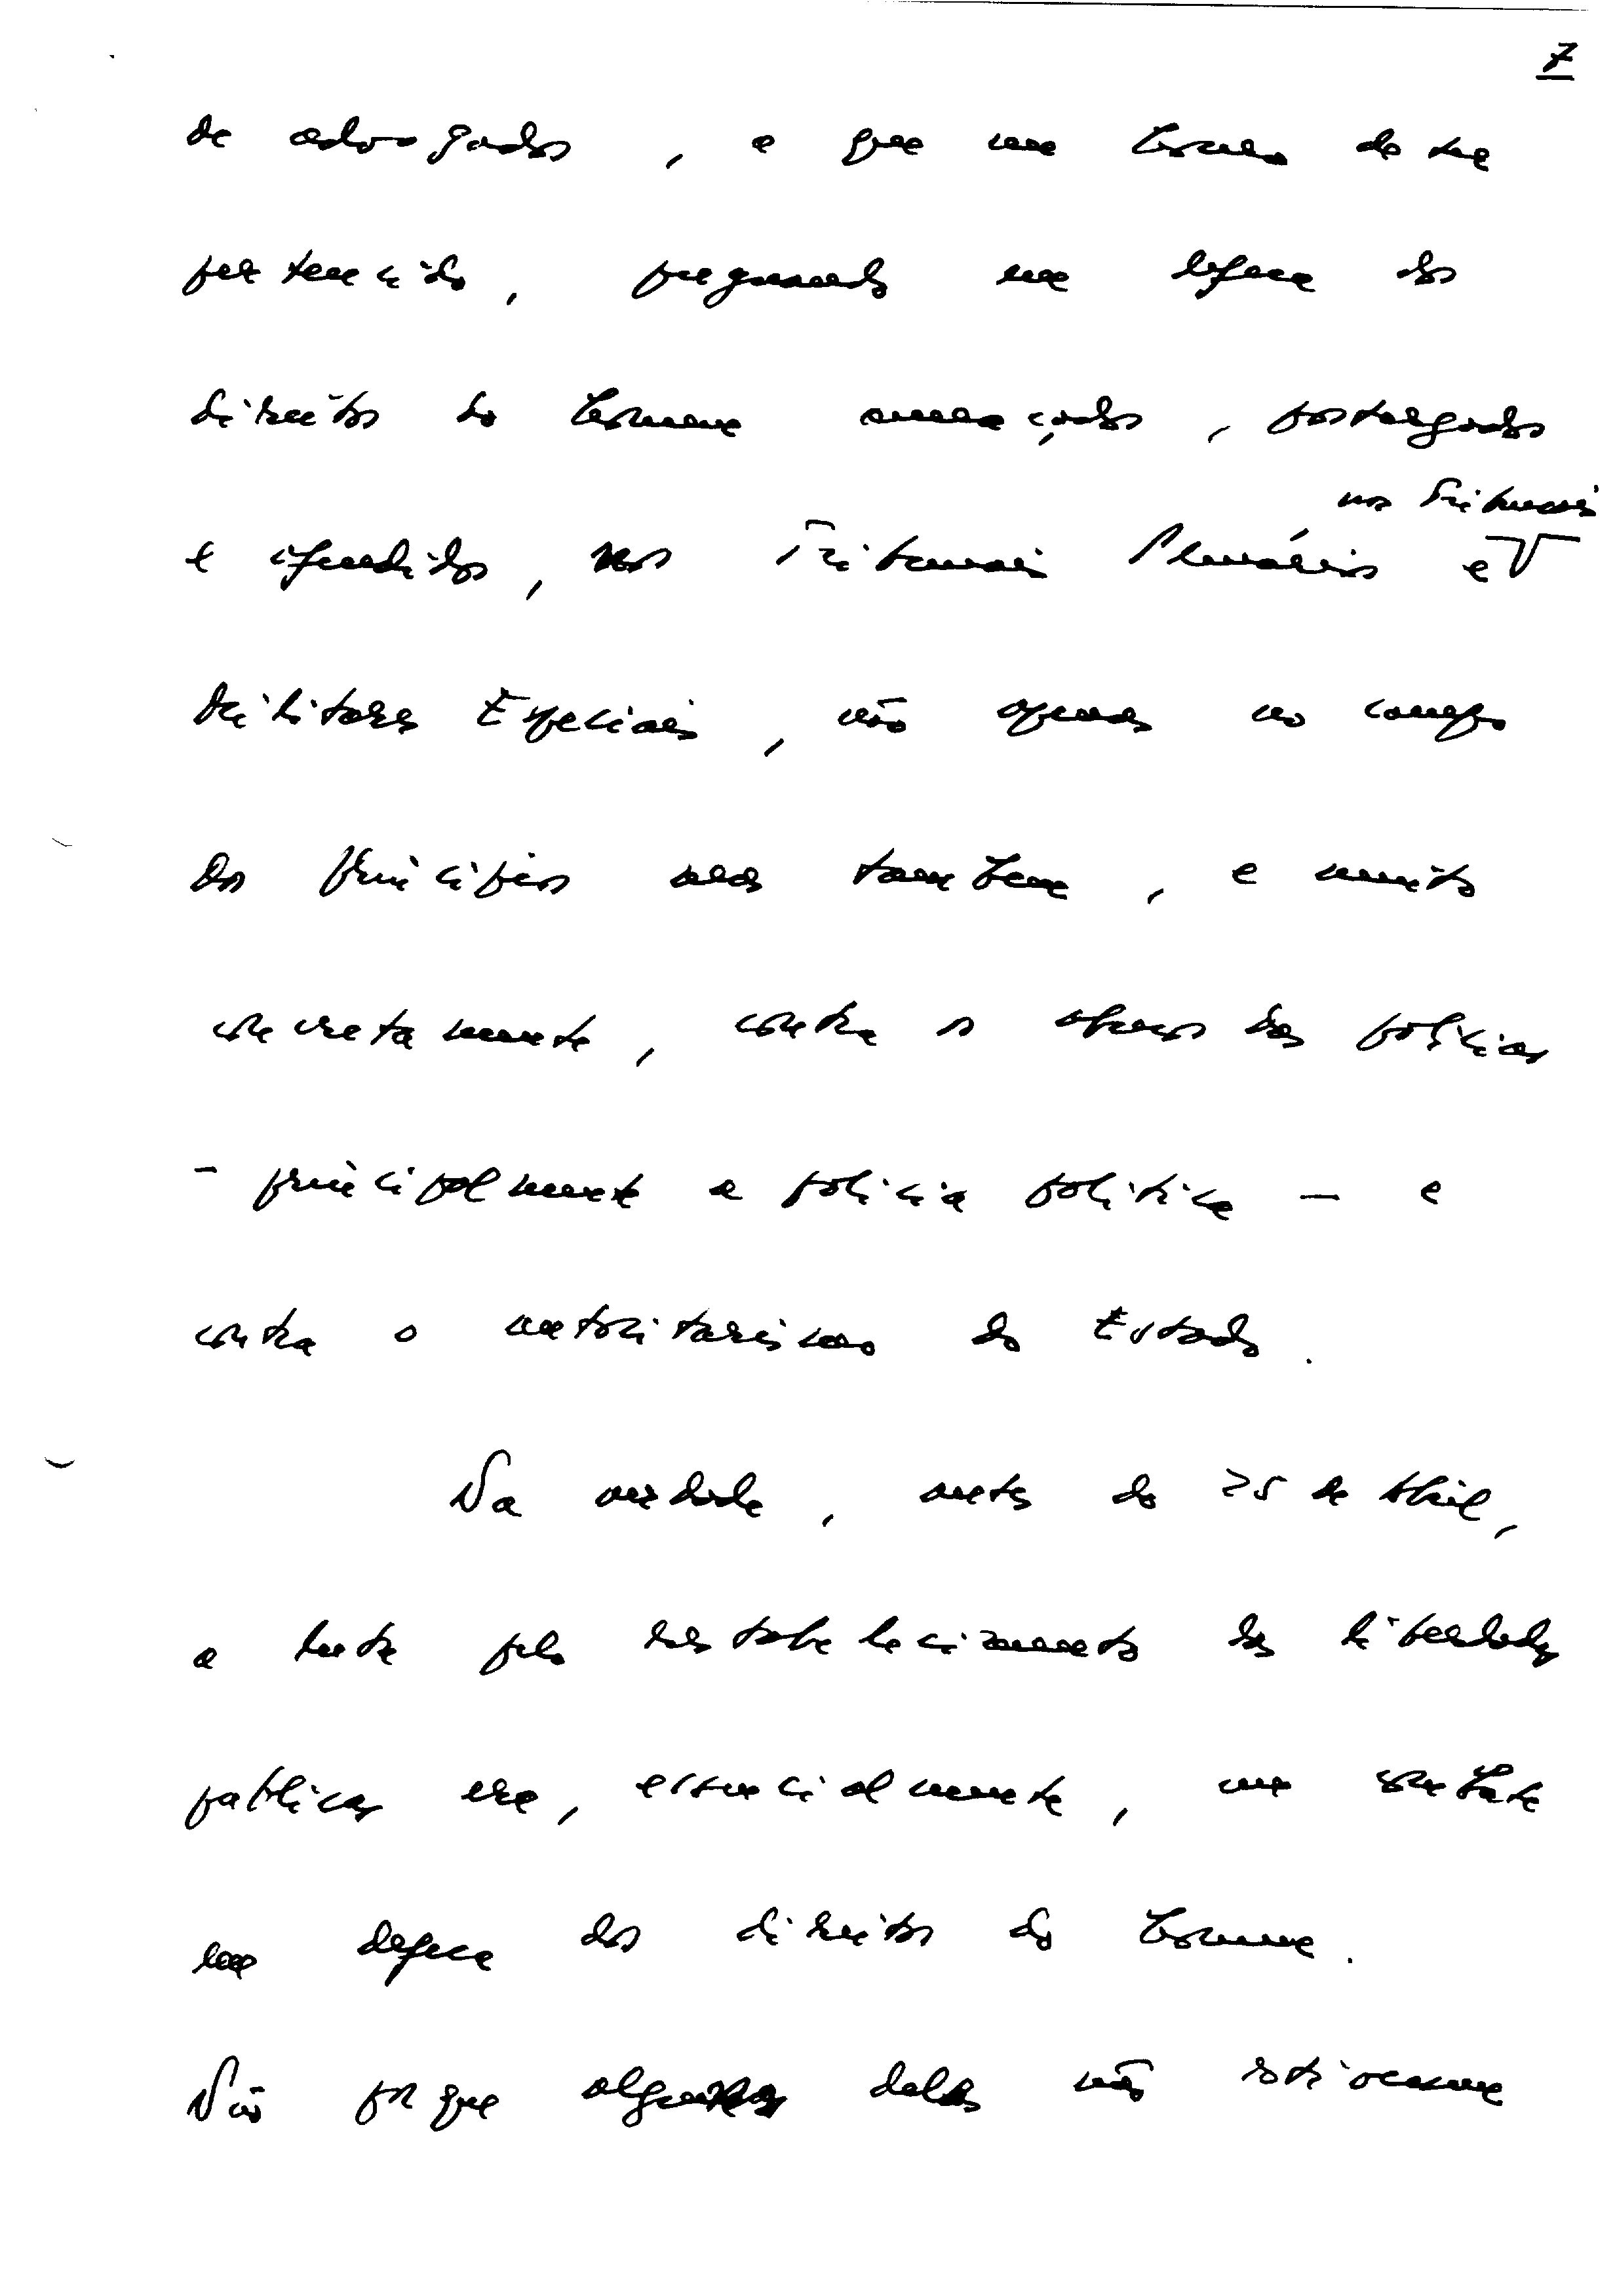 7
de advogados, a que me honro de ter
pertencido, pugnando na defesa dos
direitos do homem ameaçados, postergados
nos Tribunais
e ofendidos, nos Tribunais Plenários e
Militares Especiais, não apenas no campo
dos princípios mas também, e muito
concretamente, contra os abusos das polícias
- principalmente a polícia política - e
contra o autoritarismo do Estado.
Na verdade, antes do 25 de Abril,
a luta pelo restabelecimento das liberdades
públicas era, essencialmente, um combate
em defesa dos direitos do homem.
Não porque alguns deles não estivessem